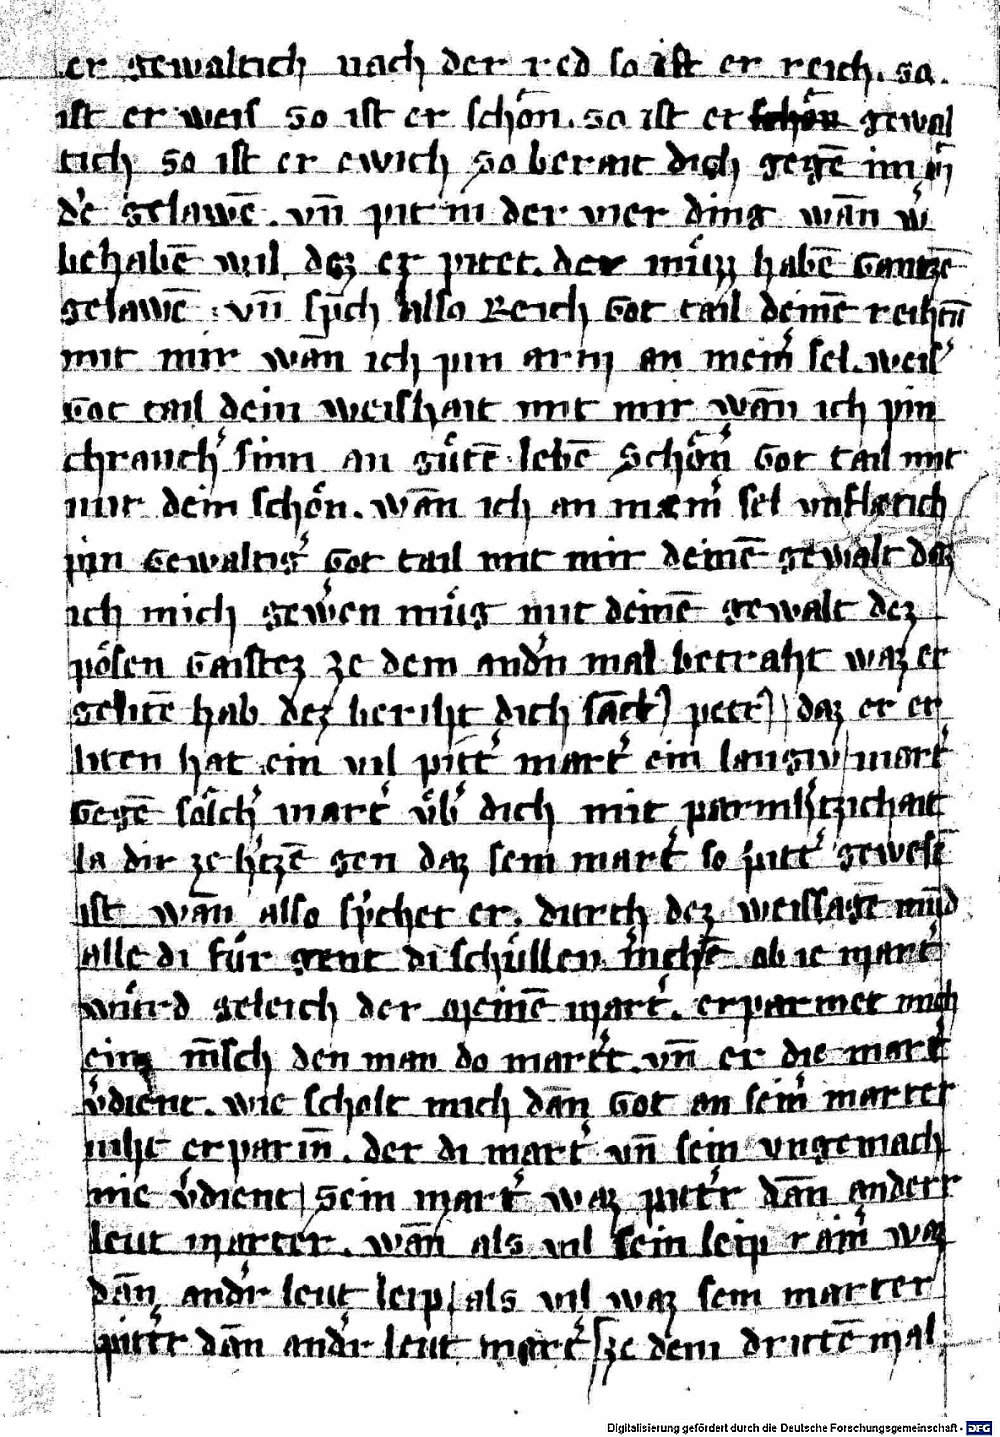 er gewaltich nach der red so ist er reich. so.
ist er weis so ist er schön. so ist er schön gewal
tich so ist er ewich so berait dich gegē im
gelawē. vn̄ pit in der vier ding wān
behabē wil dez er pitet. der müzz habē Gantzē
gelawē : vn̄ sp̄ch also Reich Got tail deinē reihtū
mit mir wān ich pin arm an mein̄ʼ sel. weisʼ
Got tail dein weishait mit mir wān ich pin
chranchʼ sinn an gůtē lebē Schön̄ʼ Got tail mit
mir dein schön. wān ich an mein̄ʼ sel vnflætich
pin Gewaltigʼ Got tail mit mir deinē gewalt daz
ich mich gewʼen müg mit deinē gewalt dez
pösen Gaistez ze dem andʼn mal betraht waz er
gelitē hab dez beriht dich sāct petʼ daz er er
liten hat ein vil pittʼ martʼ ein langiv martʼ
Gegē sölchʼ martʼ v̈bʼ dich mit parmhʼtzichait
la dir ze hʼtzē gen daz sein martʼ so pittʼ gewesē
ist wān also spʼchet er. durch dez weissagē mūd
alle di für gent di schüllen mʼchē ob ie martʼ
würd geleich der meinē martʼ. erparmet mich
eins m̄sch den man do martʼt. vn̄ er die martʼ
vʼdient. wie scholt mich dān Got an sein̄ʼ marter
niht erparm̄. der di martʼ vn̄ sein vngemach
nie vʼdient Sein martʼ waz pittʼr dān anderr
leut marter. wān als vil sein leip rainʼ waz
dān andʼr leut leip als vil waz sein marter
pittʼr dān andʼr leut martʼ ze dem drittē mal
Digitalisierung gefördert durch die Deutsche Forschungsgemeinschaft - DFG